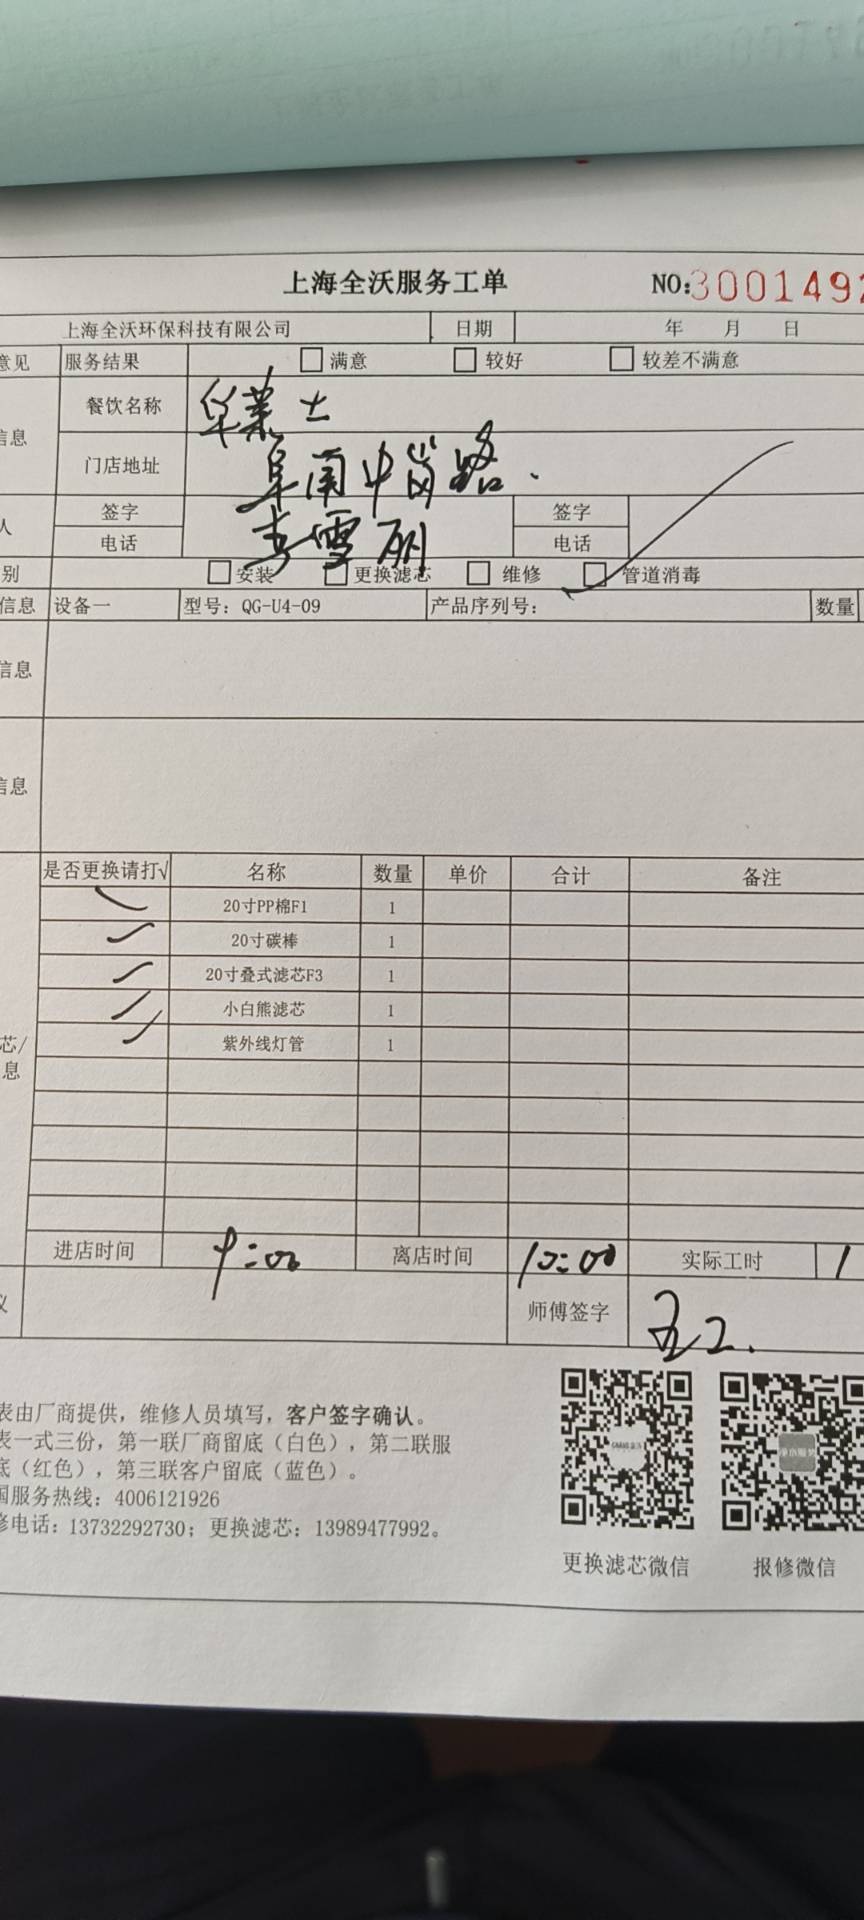 上海全沃服务工单 NO:3001492
上海全沃环保科技有限公司 日期 年 月 日
意见 服务结果 满意 较好 较差不满意
信息 餐饮名称 华莱士
门店地址 阜南中岗路.
人 签字 签字
电话 雪丽 电话
别 安装 更换滤芯 维修 管道消毒
信息 设备一 型号：QG-U4-09 产品序列号： 数量
信息
信息
是否更换请打√ 名称 数量 单价 合计 备注
20寸PP棉F1 1
20寸碳棒 1
20寸叠式滤芯F3 1
小白熊滤芯 1
芯/ 紫外线灯管 1
息
进店时间 9:00 离店时间 10:00 实际工时 1
议 师傅签字
表由厂商提供，维修人员填写，客户签字确认。
表一式三份，第一联厂商留底（白色），第二联服
底（红色），第三联客户留底（蓝色）。
国服务热线：4006121926
修电话：13732292730；更换滤芯：13989477992。
更换滤芯微信 报修微信